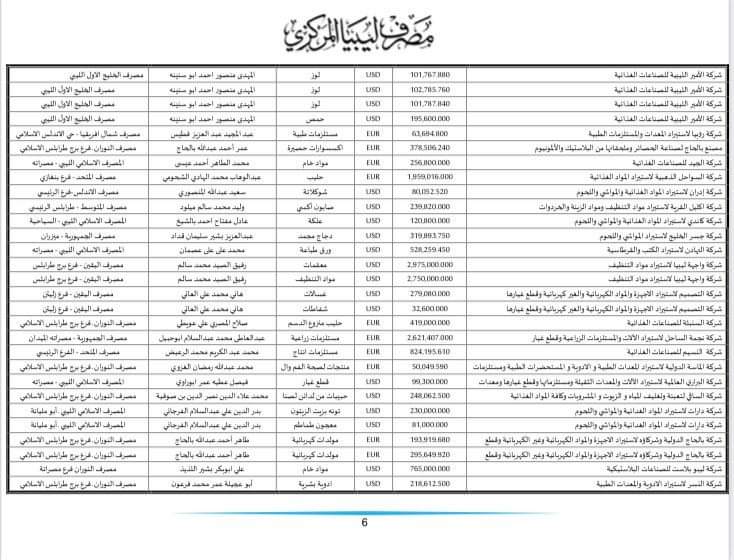 مصرف ليبيا المركزي
شركة الأمير الليبية للصناعات الغذائية 101,767.880 USD لوز المهدي منصور احمد ابو سنينه مصرف الخليج الاول الليبي
شركة الأمير الليبية للصناعات الغذائية 102,785.760 USD لوز المهدي منصور احمد ابو سنينه مصرف الخليج الاول الليبي
شركة الأمير الليبية للصناعات الغذائية 101,787.840 USD لوز المهدي منصور احمد ابو سنينه مصرف الخليج الاول الليبي
شركة الأمير الليبية للصناعات الغذائية 195,600.000 USD حمص المهدي منصور احمد ابو سنينه مصرف الخليج الاول الليبي
شركة رؤيا لاستيراد المعدات والمستلزمات الطبية 63,694.800 EUR مستلزمات طبية عبد المجيد عبد العزيز فطيس مصرف شمال افريقيا - حي الاندلس الاسلامي
مصنع بالحاج لصناعة الحصائر وملحقاتها من البلاستيك والألومنيوم 378,506.240 EUR اكسسوارات حصيرة عمر أحمد عبدالله بالحاج مصرف النوران. فرع برج طرابلس الاسلامي
شركة الجيد للصناعات الغذائية 256,800.000 EUR مواد خام محمد الطاهر أحمد عيسى المصرف الاسلامي الليبي - مصراته
شركة السواحل الذهبية لاستيراد المواد الغذائية 1,959,016.000 EUR حليب عبدالوهاب محمد الهادي الشحومي مصرف المتحد - فرع بنغازي
شركة إدران لاستيراد المواد الغذائية والمواشي واللحوم 80,052.520 USD شوكلاتة سعيد عبدالله المنصوري مصرف الاندلس-فرع الرئيسي
شركة اكليل القرية لاستيراد مواد التنظيف ومواد الزينة والخردوات 239,820.000 USD صابون أكسي وليد محمد سالم ميلود مصرف المتوسط - طرابلس الرئيسي
شركة كاندي لاستيراد المواد الغذائية والمواشي واللحوم 120,800.000 USD علكة عادل مفتاح احمد بالشيخ المصرف الاسلامي الليبي - السياحية
شركة جسر الخليج لاستيراد المواشي واللحوم 319,893.750 USD دجاج مجمد عبدالعزيز بشير سليمان قداد مصرف الجمهورية - ميزران
شركة لاستيراد الكتب والقرطاسية 528,259.450 USD ورق طباعة محمد على على عصمان المصرف الاسلامي الليبي - مصراته
شركة واجهة ليبيا لاستيراد مواد التنظيف 2,975,000.000 USD معقمات رفيق الصيد محمد سالم مصرف اليقين - فرع برج طرابلس
شركة واجهة ليبيا لاستيراد مواد التنظيف 2,750,000.000 USD مواد التنظيف رفيق الصيد محمد سالم مصرف اليقين - فرع برج طرابلس
شركة التصميم لاستيراد الاجهزة والمواد الكهربائية والغير كهربائية وقطع غيارها 279,080.000 USD غسالات هاني محمد علي العاني مصرف اليقين - فرع زليتن
شركة التصميم لاستيراد الاجهزة والمواد الكهربائية والغير كهربائية وقطع غيارها 32,600.000 USD شفاطات هاني محمد علي العاني مصرف اليقين - فرع زليتن
شركة السنبلة للصناعات الغذائية 419,000.000 EUR حليب منزوع الدسم صلاح المصري علي عويطي مصرف النوران. فرع برج طرابلس الاسلامي
شركة نجمة الساحل لاستيراد الآلات والمستلزمات الزراعية وقطع غيار 2,621,407.000 EUR مستلزمات زراعية عبدالعاطي محمد عبدالسلام ابوحميل مصرف الجمهورية - مصراته الميدان
شركة النسيم للصناعات الغذائية 824,195.610 EUR مستلزمات انتاج محمد عبد الكريم محمد الرعيض مصرف المتحد - الفرع الرئيسي
شركة الماسة الدولية لاستيراد المعدات الطبية و الادوية و المستحضرات الطبية ومستلزمات 50,049.590 EUR منتجات لصحة الفم وال محمد عبدالله رمضان الغزوي مصرف النوران. فرع برج طرابلس الاسلامي
شركة البراري العالمية لاستيراد الآلات والمعدات الثقيلة ومستلزماتها وقطع غيارها ومعدات 99,300.000 USD قطع غيار فيصل عطيه عمر ابوراوي المصرف الاسلامي الليبي - مصراته
شركة الساقي لتعبئة وتغليف المياه و الزيوت و المشروبات وكافة المواد الغذائية 248,062.500 USD حبيبات من لدائن لصنا محمد علاء الدين نصر الدين بن صوفية مصرف النوران. فرع برج طرابلس الاسلامي
شركة دارات لاستيراد المواد الغذائية والمواشي واللحوم 230,000.000 USD تونه بزيت الزيتون بدر الدين علي عبدالسلام الفرجاني المصرف الاسلامي الليبي. أبو مليانة
شركة دارات لاستيراد المواد الغذائية والمواشي واللحوم 81,000.000 USD معجون طماطم بدر الدين علي عبدالسلام الفرجاني المصرف الاسلامي الليبي. أبو مليانة
شركة بالحاج الدولية وشركاؤه لاستيراد الاجهزة والمواد الكهربائية وغير الكهربائية وقطع 193,919.680 EUR مولدات كهربائية طاهر أحمد عبدالله بالحاج مصرف النوران. فرع برج طرابلس الاسلامي
شركة بالحاج الدولية وشركاؤه لاستيراد الاجهزة والمواد الكهربائية وغير الكهربائية وقطع 295,649.920 EUR مولدات كهربائية طاهر أحمد عبدالله بالحاج مصرف النوران. فرع برج طرابلس الاسلامي
شركة ليبو بلاست للصناعات البلاستيكية 765,000.000 USD مواد خام علي ابوبكر بشير اللذيذ مصرف النوران فرع مصراتة
شركة النسر لاستيراد الادوية والمعدات الطبية 218,612.500 USD ادوية بشرية أبو عجيلة عمر محمد فرعون مصرف النوران. فرع برج طرابلس الاسلامي
6